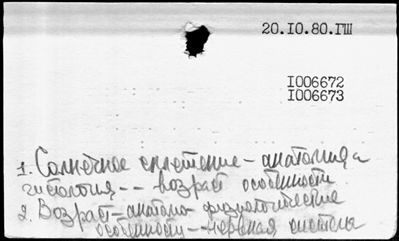 20.10.80.ГШ
I006672
I006673
1. Солнечное сплетение – анатомия и
гистология -- возраст особенности
2. Возраст – анатомо физиологические
особенности – нервная система